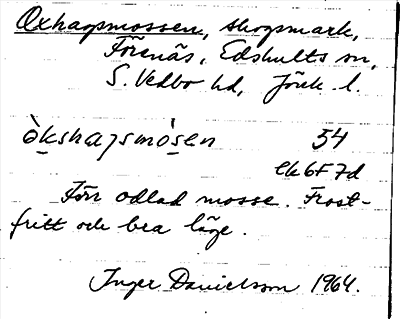 Oxhagsmossen, skogsmark,
Förenäs, Edshults sn,
S. Vedbo hd, Jönk. l.
òkshagsmósen 54
ek 6F7d
Förr odlad mosse. Frost-
fritt och bra läge.
Inger Danielsson 1964.